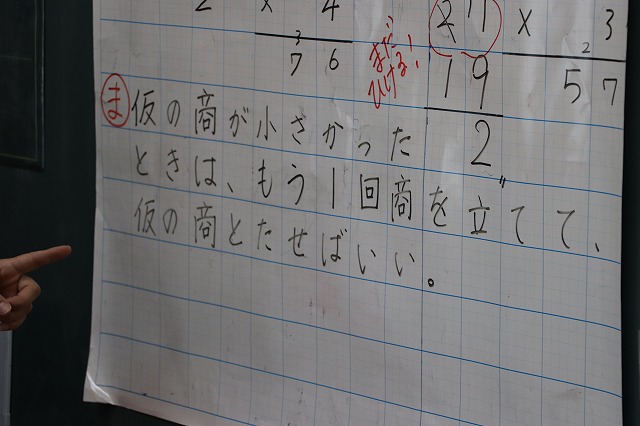 2 × 4
3
7 6
まだ
ひける!
21 × 3
19
2
5 7
2
ま 仮の商が小さかった
ときは、もう1回商を立てて、
仮の商とたせばいい。